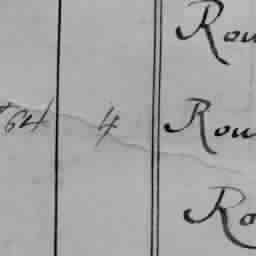 Rou
64 4 Rou
Ro